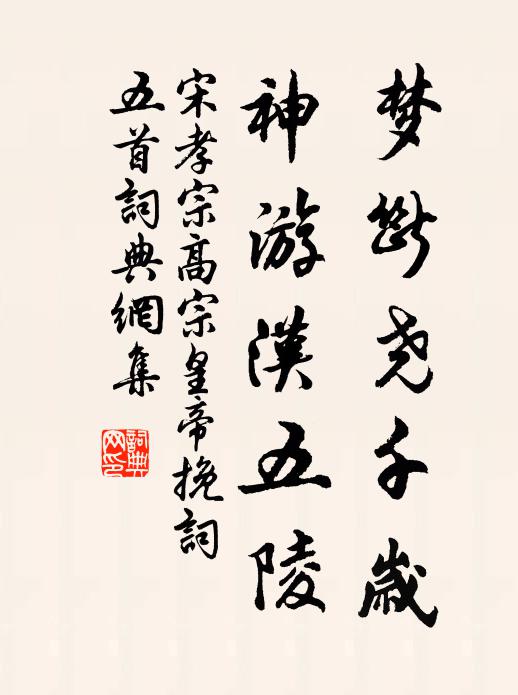 梦断尧千岁
神游漢五陵
宋孝宗高宗皇帝挽詞
五首詞典網集
詞典
网印